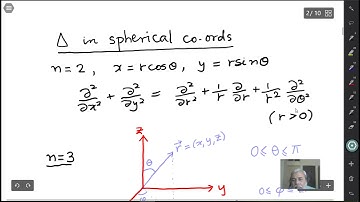 2 / 10
Δ in spherical co-ords
n=2, x=rcosθ, y=rsinθ
∂²/∂x² + ∂²/∂y² = ∂²/∂r² + 1/r ∂/∂r + 1/r² ∂²/∂θ²
(r>0)
n=3
z
r⃗=(x,y,z)
0≤θ≤π
θ
y
0≤φ
φ